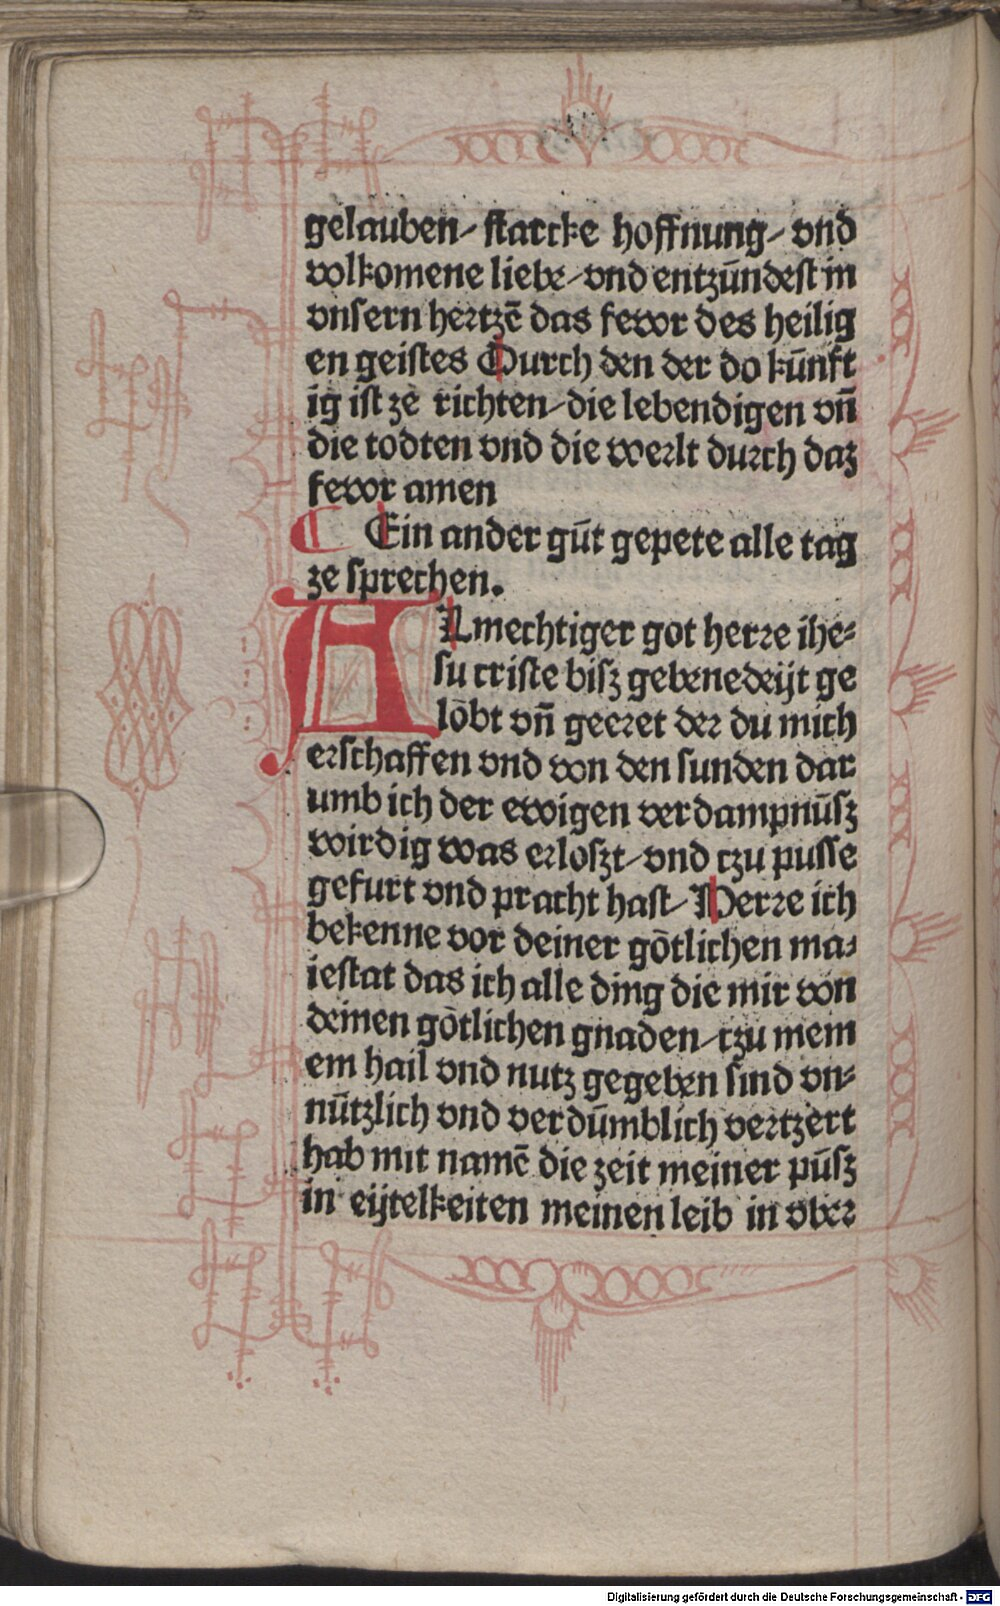 gelauben/ starcke hoffnung/ vnd
volkomene liebe/ vnd entzu̅ndest in
vnsern hertze̅ das fewr des heilig
en geistes Durch den der do ku̅nft
ig ist ze richten/ die lebendigen vn̅
die todten vnd die werlt durch daz
fewr amen
Ein ander gu̅t gepete alle tag
ze sprechen.
ALmechtiger got herre ihe⸗
su criste bisz gebenedeijt ge
lo̅bt vn̅ geeret der du mich
erschaffen vnd von den sunden dar
umb ich der ewigen verdampnu̅sz
wirdig was erloszt/ vnd czu pusse
gefurt vnd pracht hast/ Herre ich
bekenne vor deiner go̅tlichen ma⸗
iestat das ich alle ding die mir von
deinen go̅tlichen gnaden/ czu mein
em hail vnd nutz gegeben sind vn⸗
nu̅tzlich vnd verdu̅mblich vertzert
hab mit name̅ die zeit meiner pu̅sz
in eijtelkeiten meinen leib in vber
Digitalisierung gefördert durch die Deutsche Forschungsgemeinschaft - DFG